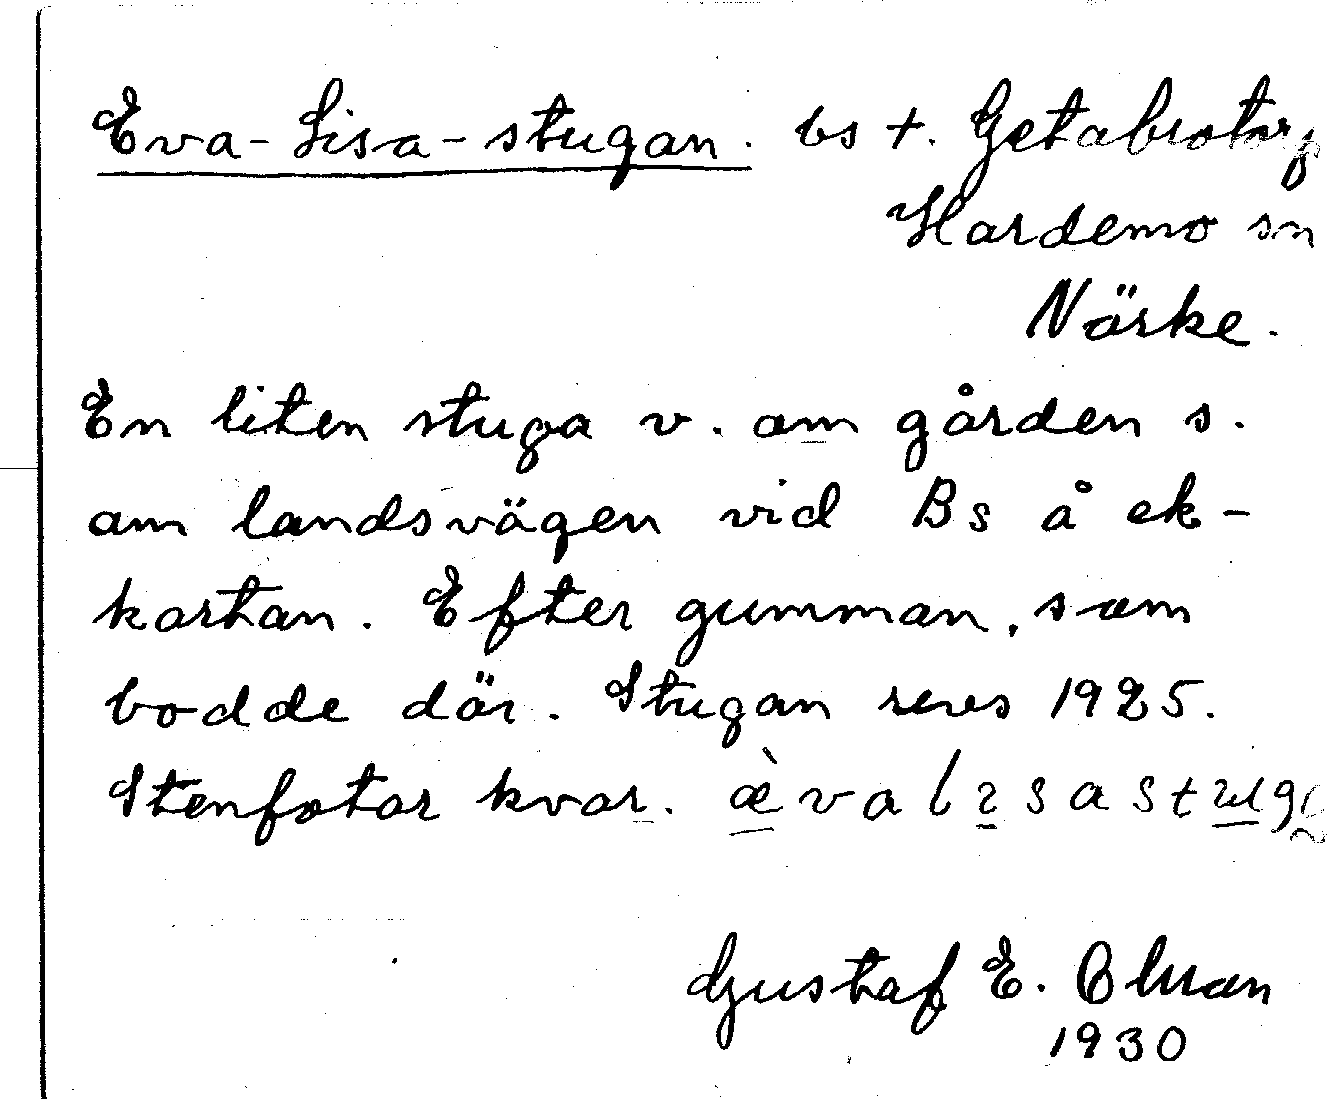 Eva-Lisa-stugan. bs t. Getabrotorp
Hardemo sn
Närke.
En liten stuga v. om gården s.
om landsvägen vid Bs å ek-
kartan. Efter gumman, som
bodde där. Stugan revs 1925.
Stenfotar kvar.
Gustaf E.
1930